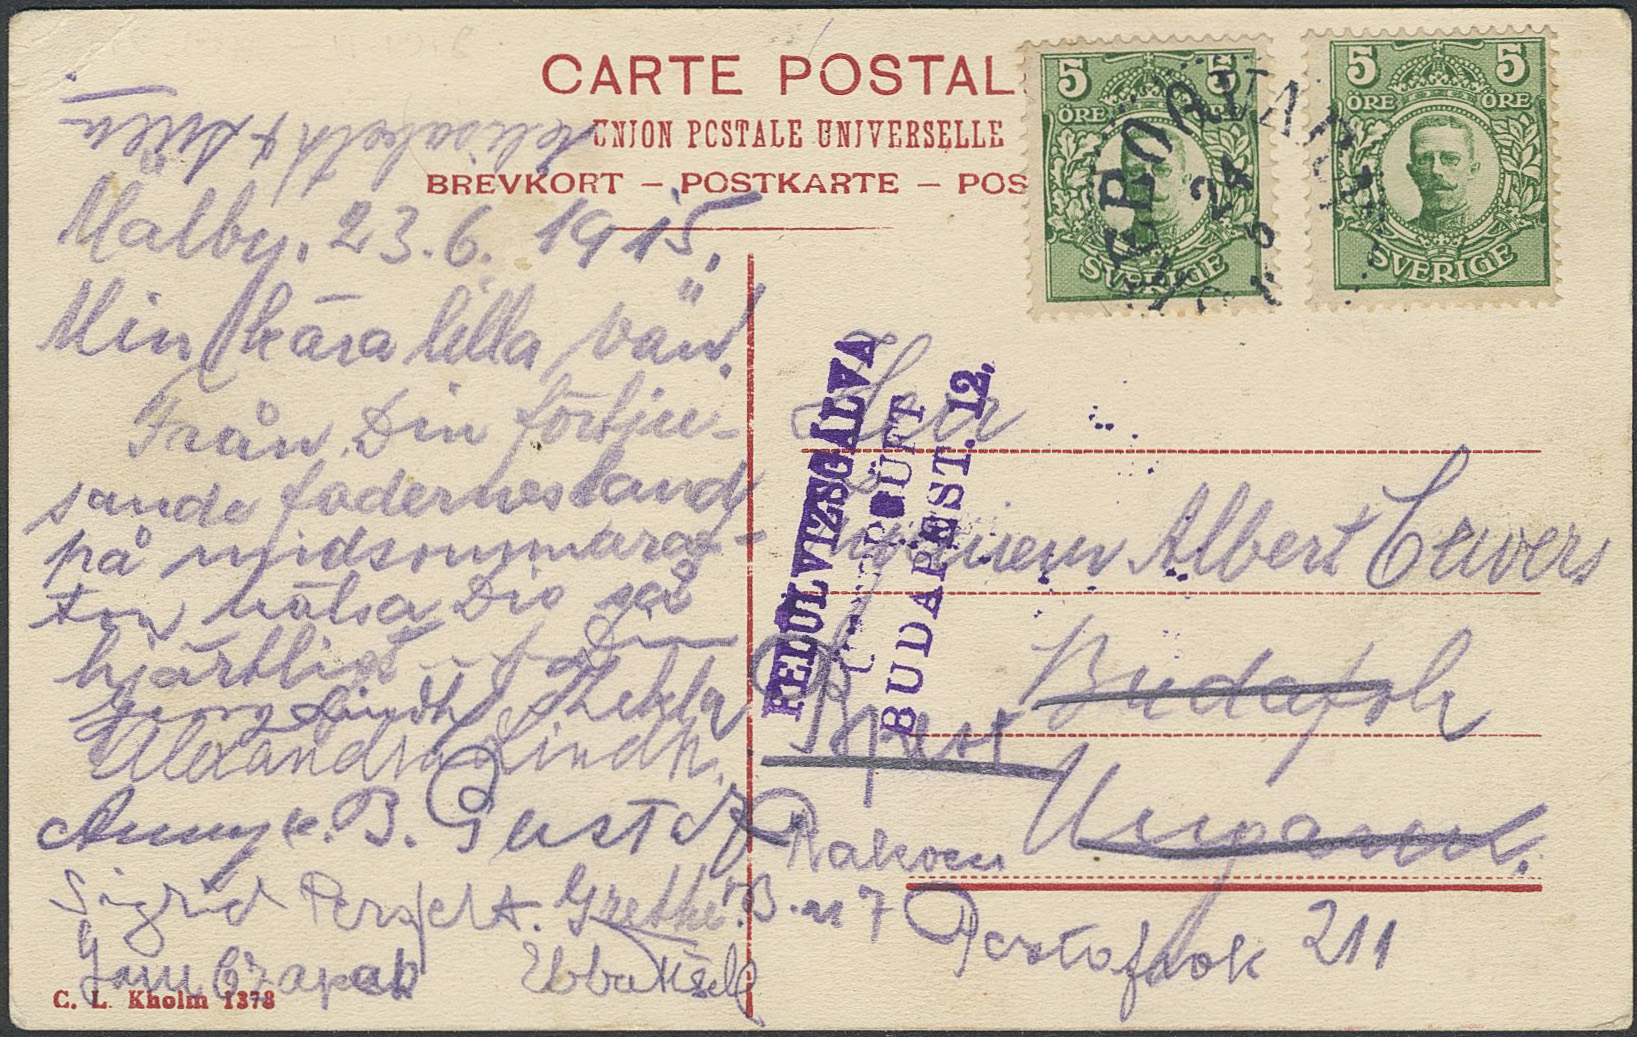 CARTE POSTAL
UNION POSTALE UNIVERSELLE
BREVKORT – POSTKARTE – POS
5 5
ÖRE ÖRE
SVERIGE
5 5
ÖRE ÖRE
SVERIGE
24
elisabeth +
Målby, 23.6.1915.
Min kära lilla vän!
Från Din förtju-
sande fädernesland
på midsommaraf-
ton hälsa Dig så
hjärtligt
Lindh, Thekla
Alexandra Lindh.
Anny v. B. Gustaf
Sigrid Grethe B.
Ebba
C. L. Kholm 1373
FELÜLVIZSGÁLVA
ÜBERPRÜFT
BUDAPEST. 12.
Herr
Albert Ervers
Budafok
Bpest
Ungarn.
Rakocu
u 7
Postafiok 211